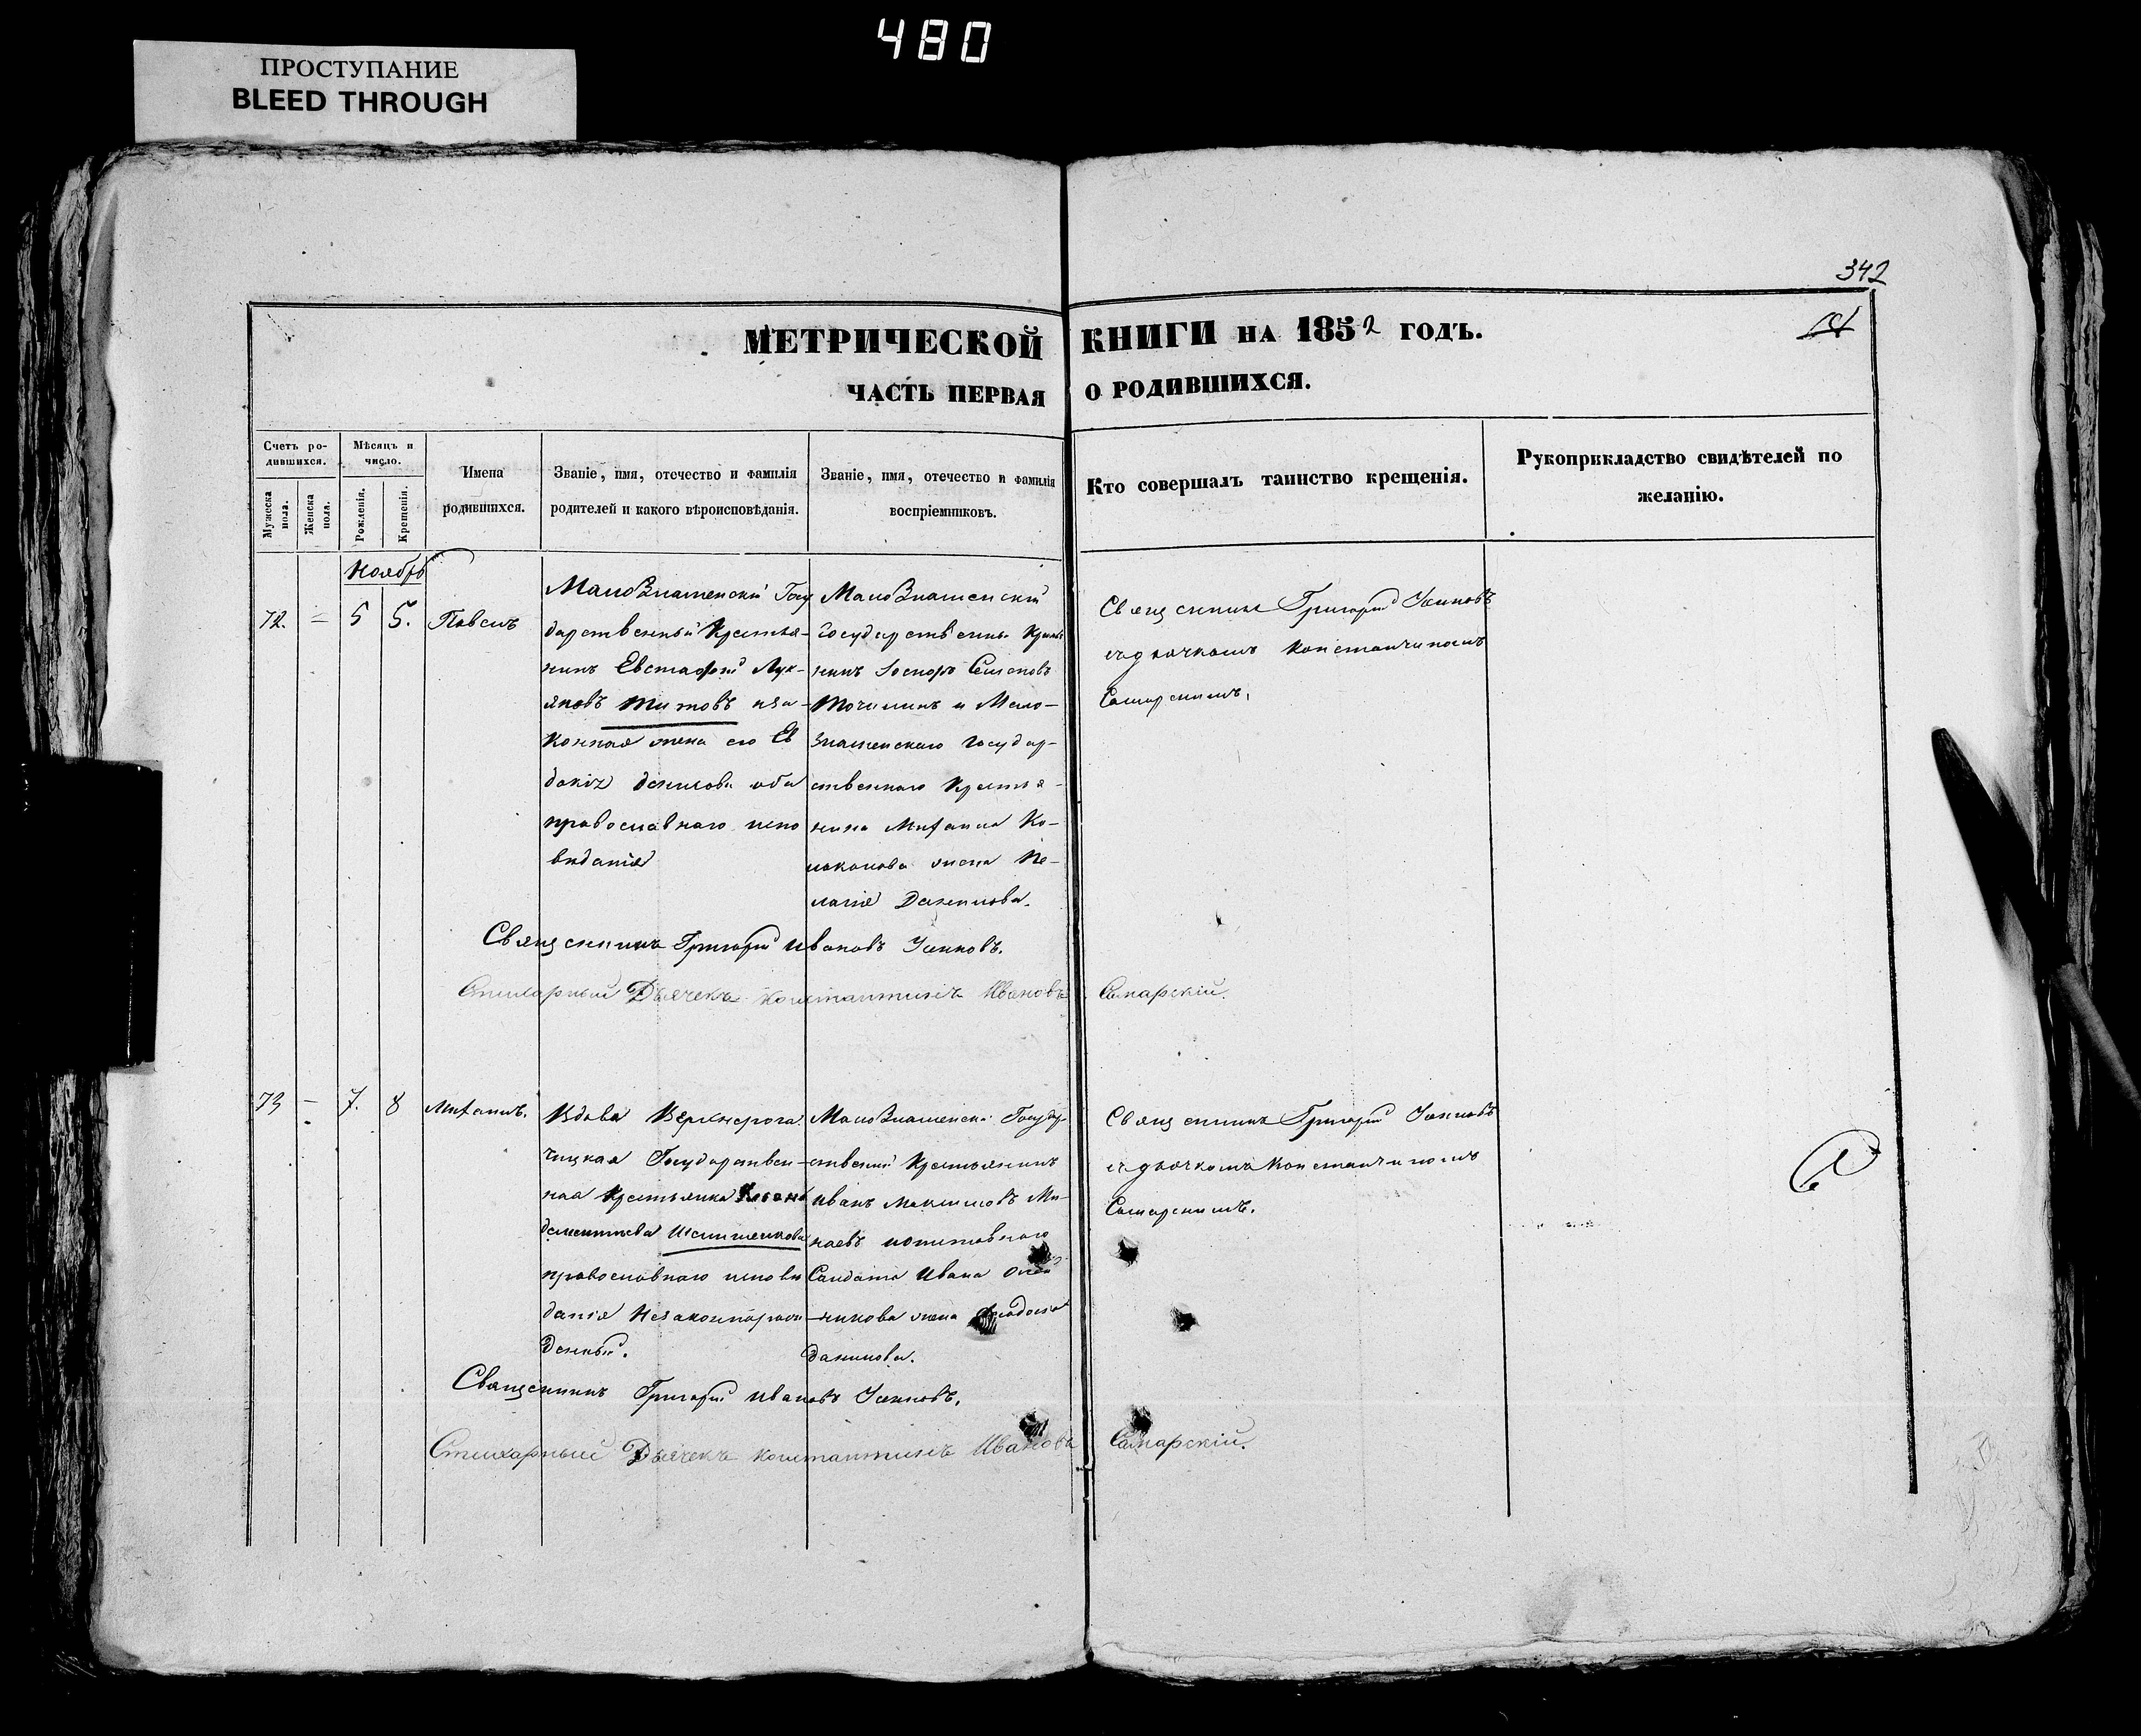 480
ПРОСТУПАНИЕ
BLEED THROUGH
342
МЕТРИЧЕСКОЙ КНИГИ НА 1852 ГОДЪ.
ЧАСТЬ ПЕРВАЯ О РОДИВШИХСЯ.
Счетъ ро-
дившихся.
Мужеска
пола.
Женска
пола.
Мѣсяцъ и
число.
Рожденія.
Крещенія.
Имена
родившихся.
Званіе, имя, отечество и фамилія
родителей и какого вѣроисповѣданія.
Званіе, имя, отечество и фамилія
воспріемниковъ.
Кто совершалъ таинство крещенія.
Рукоприкладство свидѣтелей по
желанію.
Ноябрь
72. = 5 5. Павелъ
МалоЗнаменскій Госу
дарственный Крестья-
нинъ Евстафій Лук-
яновъ Титовъ иза-
конная жена его Ев
докія Данилова оба
православнаго испо
вѣданія
МалоЗнаменскій
Государственный Крестья
нинъ Семеновъ
и Мало-
Знаменскаго Государ-
ственнаго Крестья-
нина Михаила Ко-
жена Пе-
лагія Данилова.
Священникъ Григорій
съ дьячкомъ Константиномъ
Самарскимъ.
Священникъ Григорій Ивановъ
Стихарный Дьячекъ Константинъ Ивановъ Самарскій.
73 – 7. 8 Михаилъ.
Вдова Верхнерога-
чицкая Государствен-
ная Крестьянка
дементьева
православнаго исповѣ
данія Незаконнорож
денный.
МалоЗнаменскій Государ-
ственный Крестьянинъ
Иванъ Максимовъ Ми-
наевъ
Солдата Ивана
жена
данилова.
Священникъ Григорій
съ дьячкомъ Константиномъ
Самарскимъ.
Священникъ Григорій Ивановъ
Стихарный Дьячекъ Константинъ Ивановъ Самарскій.